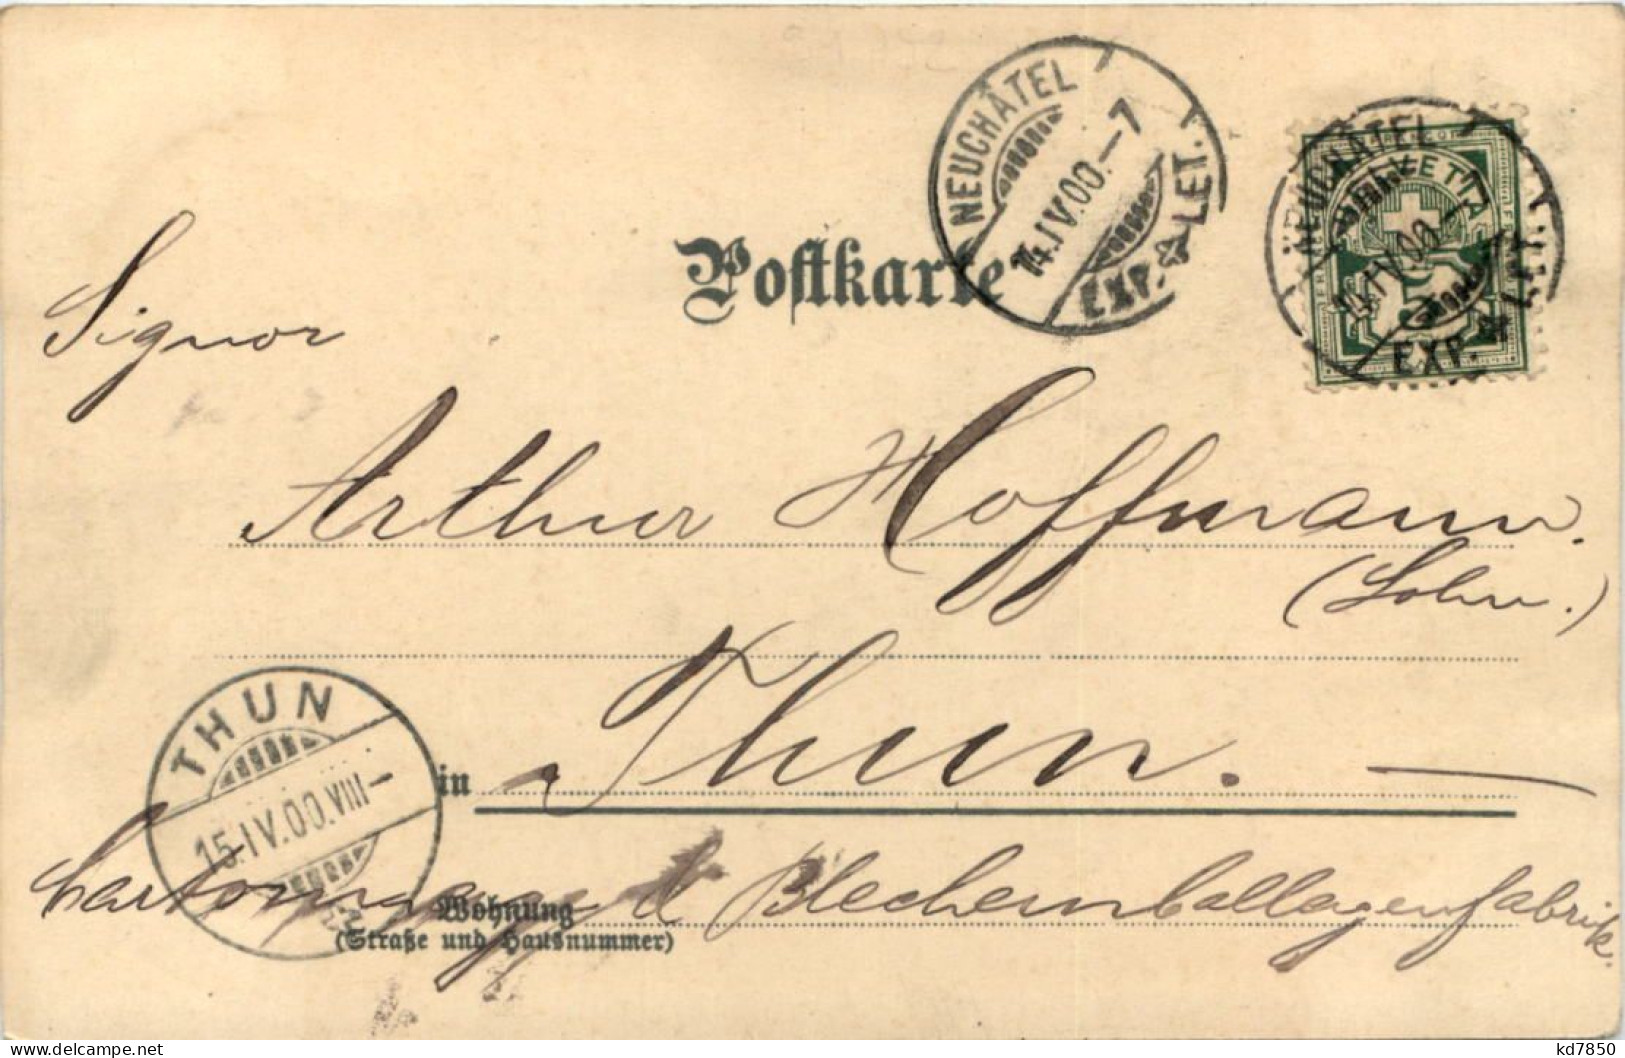 Postkarte
NEUCHÂTEL
14.IV.00.–7
EXP. LET.
NEUCHÂTEL
HELVETIA
IV.00.–7
EXP. LET.
Signor
Arthur Hoffmann.
(Sohn.)
in Thun.
THUN
15.IV.00.VIII–
Cartonnage & Blechemballagenfabrik.
Wohnung
(Straße und Hausnummer)
kd7850